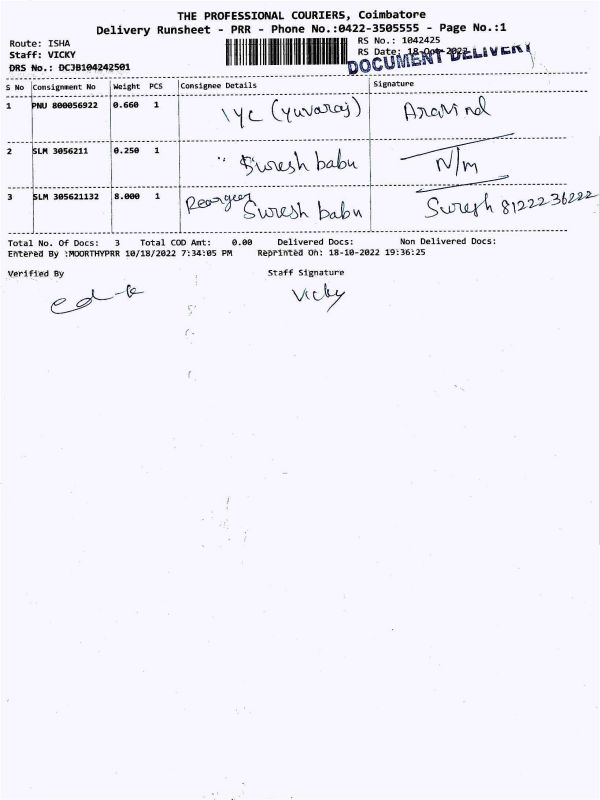 THE PROFESSIONAL COURIERS, Coimbatore
Delivery Runsheet - PRR - Phone No.:0422-3505555 - Page No.:1
Route: ISHA
RS No.: 1042425
Staff: VICKY
RS Date: 18-Oct-2022
DRS No.: DCJB104242501
DOCUMENT DELIVERY
S No Consignment No Weight PCS Consignee Details Signature
1 PNU 800056922 0.660 1 IYC (Yuvaraj) Aravind
2 SLM 3056211 0.250 1 " Suresh babu N/m
3 SLM 305621132 8.000 1 Suresh babu Suresh 8122236222
Total No. Of Docs: 3 Total COD Amt: 0.00 Delivered Docs: Non Delivered Docs:
Entered By :MOORTHYPRR 10/18/2022 7:34:05 PM Reprinted On: 18-10-2022 19:36:25
Verified By Staff Signature
Vicky